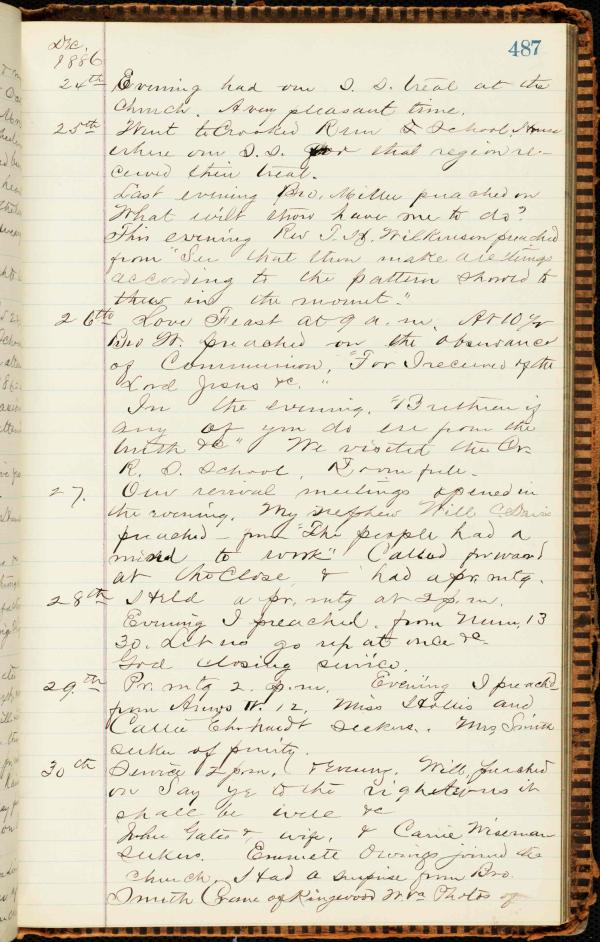 Dec.
1886
487
24th Evening had our S. S. treat at the
Church. A very pleasant time.
25th Went to Crooked Run & School House
where our S. S. for that region re-
ceived their treat.
Last evening Bro. Miller preached on
What wilt thow have me to do?
This evening Rev T. H. Wilkinson preached
from "See that thou make all things
according to the pattern showed to
thee in the mount."
26th Love Feast at 9 a.m. At 10 1/2
Bro W. preached on the observance
of Communion, "For I received of the
Lord Jesus &c."
In the evening, "Brethren if
any of you do err from the
truth &c" We visited the
R. S. School. Room full.
27. Our revival meetings opened in
the evening. My nephew Will
preached - from "The people had a
mind to work" Called forward
at the close & had a pr. mtg.
28th Held a pr. mtg at 2 p.m.
Evening I preached from Num. 13
30. Let us go up at once &c
Good closing service.
29th Pr. mtg 2. p.m. Evening I preached
from Amos 4. 12. Miss Hollis and
Callie Ehrhardt seekers. Mrs Smith
seeker of purity.
30th Service 2 p.m. & Evening. Will preached
on Say ye to the righteous it
shall be well &c
John Gates & wife, & Carrie Wiseman
seekers. Emmett Owings joined the
church. Had a surprise from Bro.
Smith Crane of Kingwood W. Va Photos of